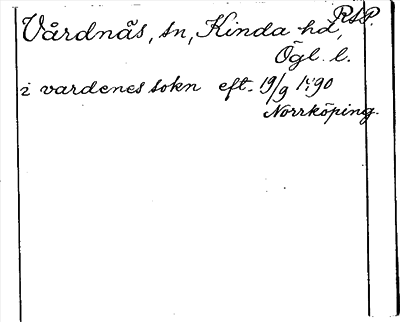 RAP.
Vårdnäs, sn, Kinda hd,
Ögl. l.
i vardenes sokn eft. 19/9 1490
Norrköping.